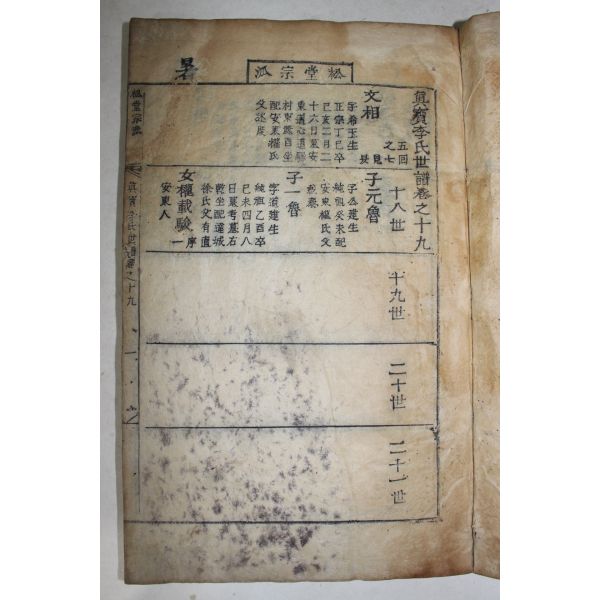 暑
松堂宗派
眞寶李氏世譜卷之十九
五回
之七
見
文相
字希玉生
正宗丁巳卒
己亥二月二
十六日墓安
東
村東麓酉坐
配安東權氏
父
十八世
子元魯
字公建生
純祖癸未配
安東權氏父
子一魯
字道建生
純祖乙酉卒
己未四月八
日墓考墓右
乾坐配達城
徐氏父有直
序一
女權載駿
安東人
十九世
二十世
二十一世
松堂宗派
眞寶李氏世譜卷之十九
一